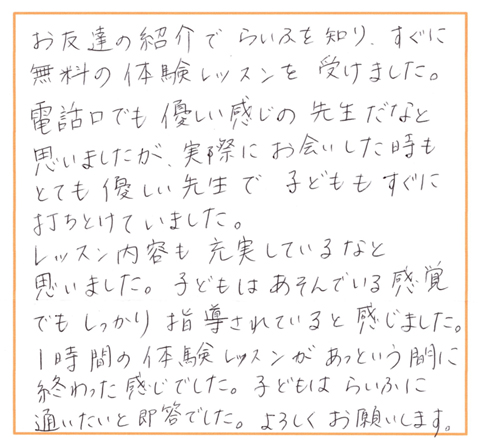 お友達の紹介で らいふを知り、すぐに
無料の体験レッスンを 受けました。
電話口でも優しい感じの先生だなと
思いましたが、実際にお会いした時も
とても優しい先生で 子どももすぐに
打ちとけていました。
レッスン内容も充実しているなと
思いました。子どもはあそんでいる感覚
でもしっかり指導されていると感じました。
1時間の体験レッスンがあっという間に
終わった感じでした。子どもは らいふに
通いたいと即答でした。よろしくお願いします。